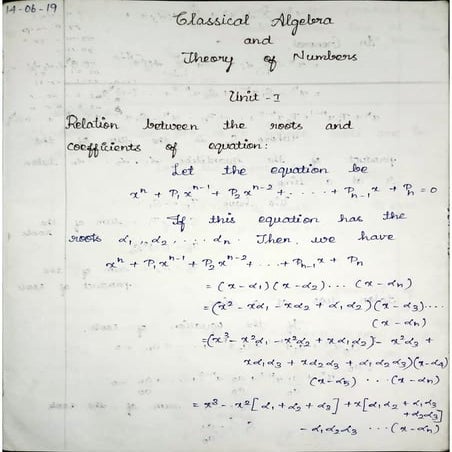 14-06-19
Classical Algebra
and
Theory of Numbers
Unit - I
Relation between the roots and
coefficients of equation:
Let the equation be
xⁿ + P₁xⁿ⁻¹ + P₂xⁿ⁻² + ..... + Pₙ₋₁x + Pₙ = 0
If this equation has the
roots α₁, α₂ .... αₙ. Then, we have
xⁿ + P₁xⁿ⁻¹ + P₂xⁿ⁻² + ... + Pₙ₋₁x + Pₙ
= (x-α₁)(x-α₂)... (x-αₙ)
= (x² - xα₁ - xα₂ + α₁α₂)(x-α₃)....
(x-αₙ)
= (x³ - x²α₁ - x²α₂ + xα₁α₂) - x²α₃ +
xα₁α₃ + xα₂α₃ + α₁α₂α₃)(x-α₄)
(x-α₅) ... (x-αₙ)
= x³ - x²[α₁+α₂+α₃] + x[α₁α₂ + α₁α₃
+α₂α₃]
- α₁α₂α₃ ...(x-αₙ)